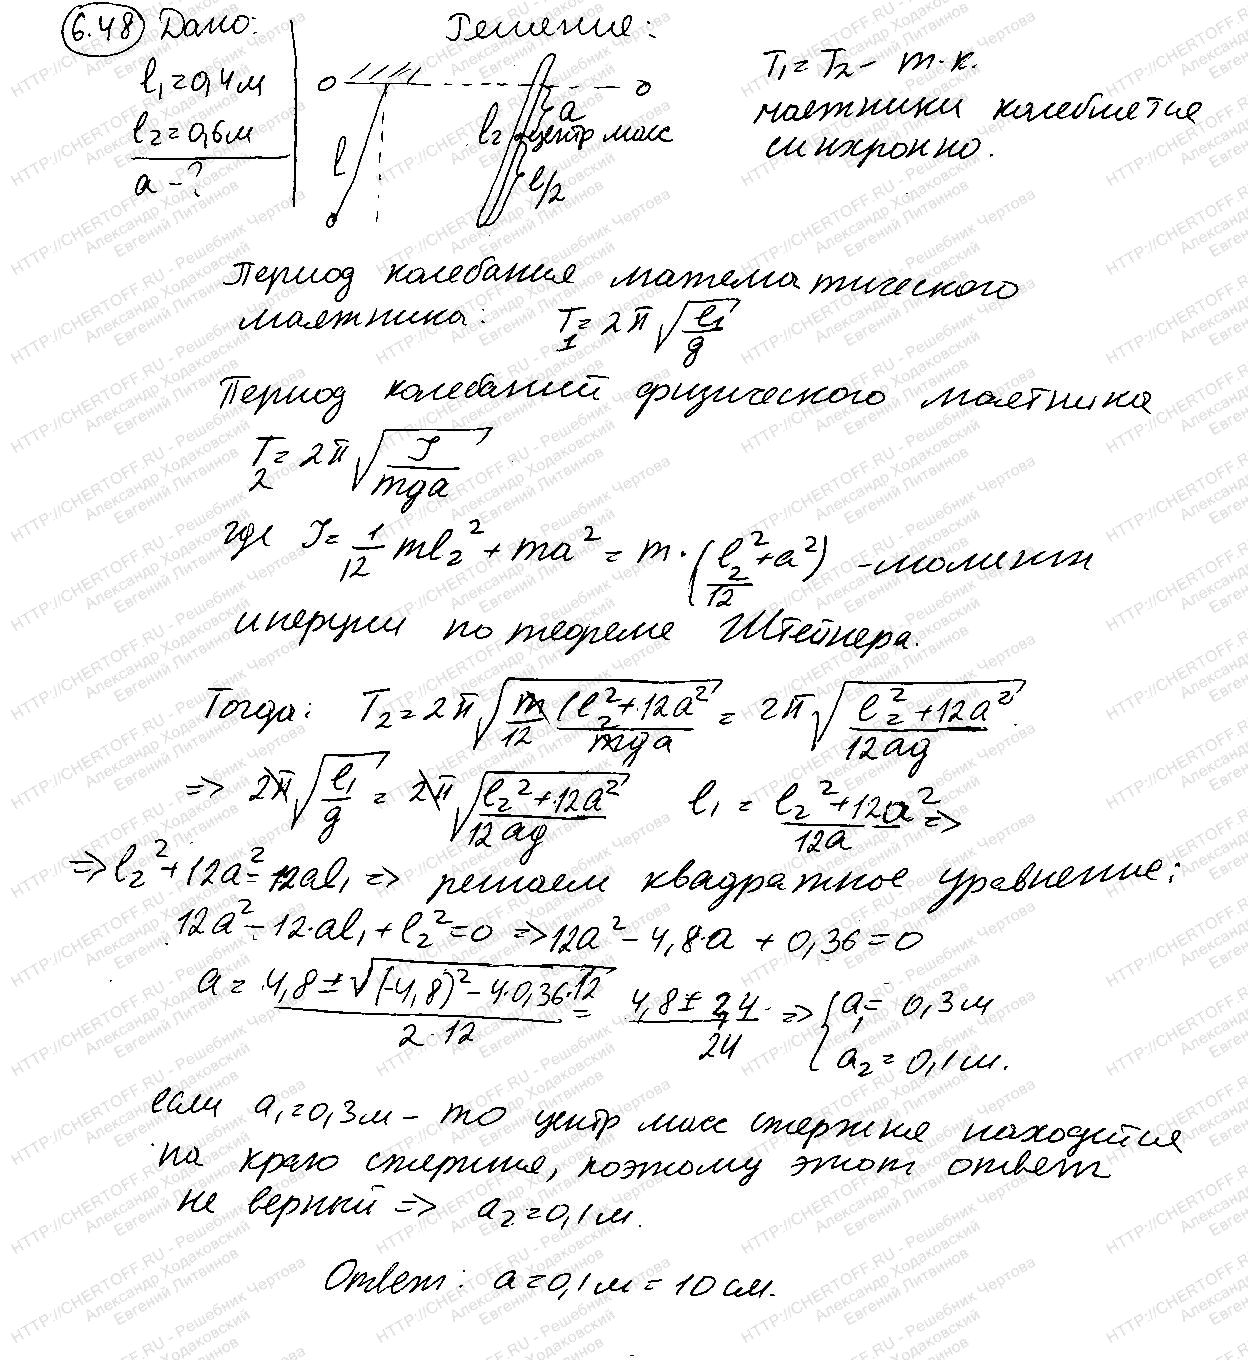 6.48 Дано: Решение:
l₁=0,4м
l₂=0,6м
a-?
O O
l
l₂
a
центр масс
l/2
T₁=T₂ - т.к.
маятники колеблется
синхронно.
Период колебания математического
маятника: T₁=2π√(l₁/g)
Период колебаний физического маятника
T₂=2π√(J/mga)
где J=1/12 ml₂²+ma²=m·(l₂²/12+a²) - момент
инерции по теореме Штейнера.
Тогда: T₂=2π√(m/12 (l₂²+12a²)/mga)=2π√((l₂²+12a²)/12ag)
=> 2π√(l₁/g)=2π√((l₂²+12a²)/12ag) l₁=(l₂²+12a²)/12a =>
=> l₂²+12a²=12al₁ => решаем квадратное уравнение:
12a²-12·al₁+l₂²=0 => 12a²-4,8·a+0,36=0
a=(4,8±√((-4,8)²-4·0,36·12))/(2·12)=(4,8±2,4)/24 => {a₁=0,3м
a₂=0,1м.
если a₁=0,3м - то центр масс стержня находится
на краю стержня, поэтому этот ответ
не верный => a₂=0,1м.
Ответ: a=0,1м=10см.
HTTP://CHERTOFF.RU - Решебник Чертова
Александр Ходаковский
Евгений Литвинов